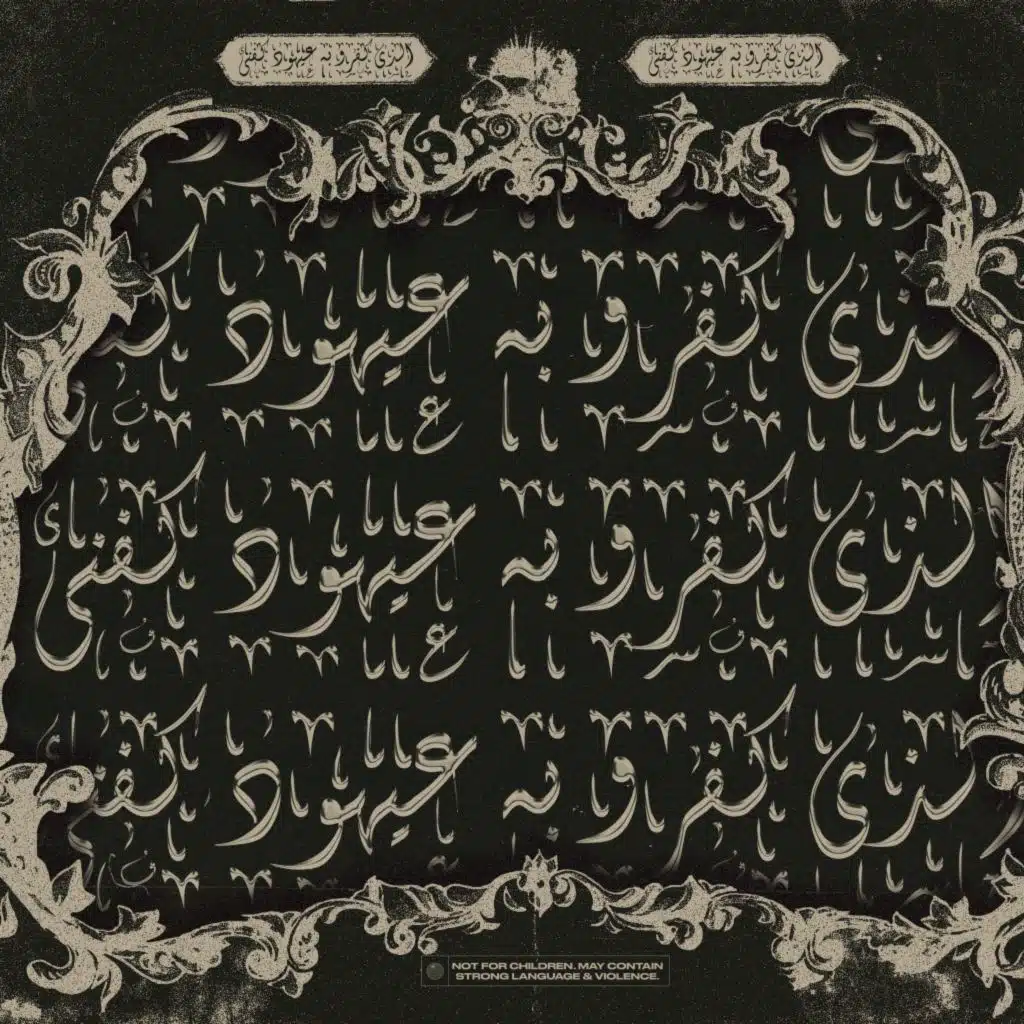 الذى كفرو به عيهود كفنى
الذى كفرو به عيهود كفنى
الذى كفرو به عيهود
الذى كفرو به عيهود كفنى
الذى كفرو به عيهود كفنى
NOT FOR CHILDREN. MAY CONTAIN
STRONG LANGUAGE & VIOLENCE.